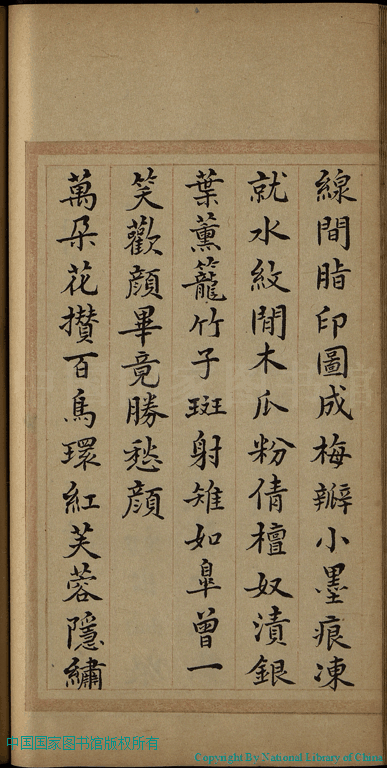 線間脂印圖成梅瓣小墨痕凍
就水紋閒木瓜粉倩檀奴漬銀
葉薰籠竹子斑射雉如臯曾一
笑歡顔畢竟勝愁顔
萬朶花攅百鳥環紅芙蓉隱繡
中国国家图书馆版权所有
Copyright By National Library of China